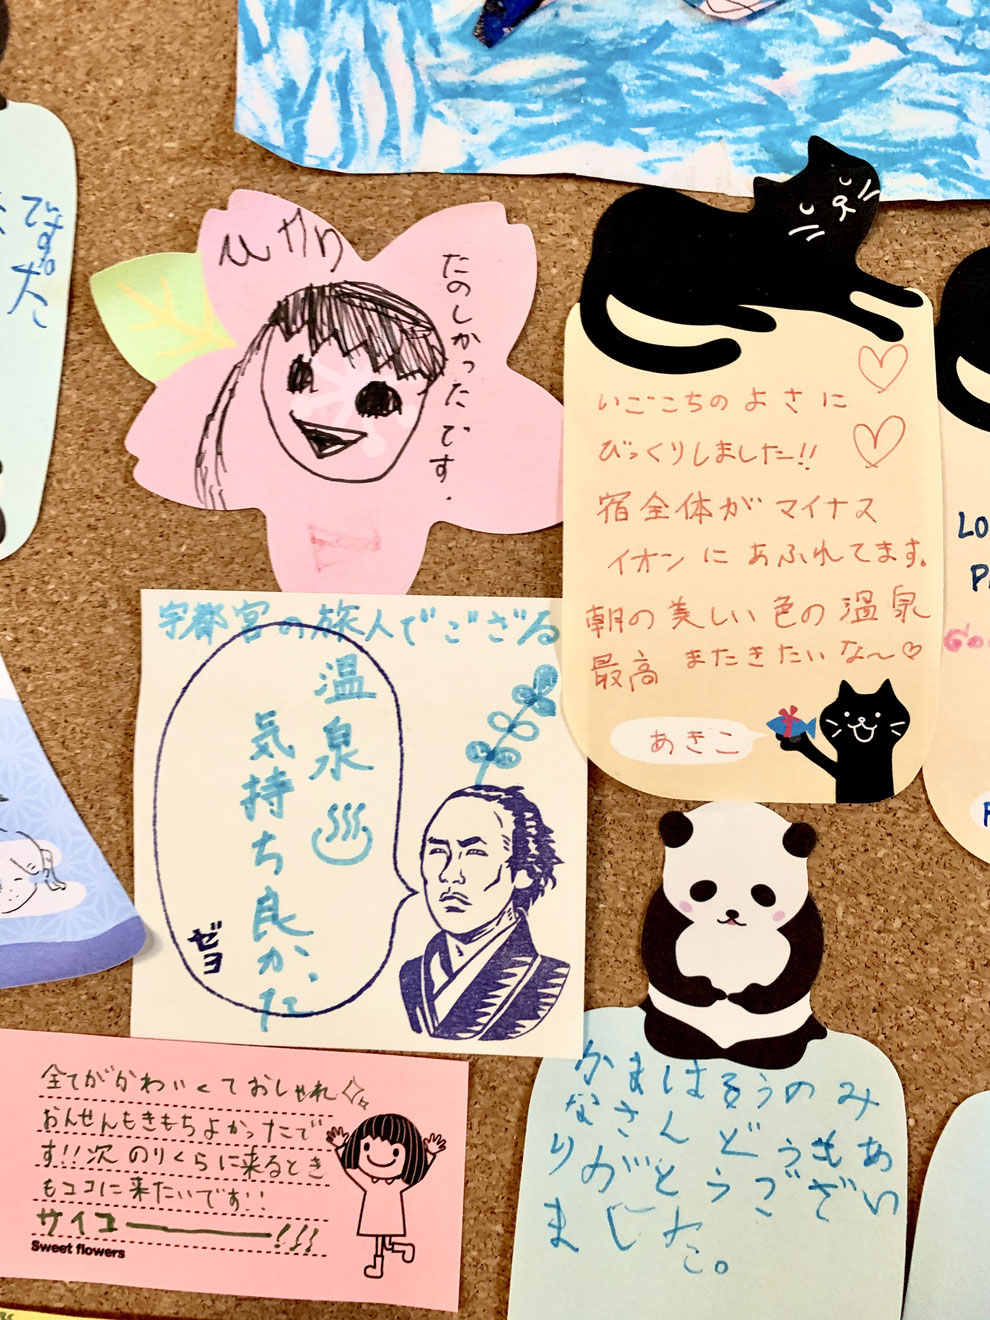 です。
ひかり
たのしかったです.
いごこちのよさに
びっくりしました!!
宿全体がマイナス
イオンにあふれてます.
朝の美しい色の温泉
最高 またきたいな〜♡
あきこ
宇都宮の旅人でござる
温泉♨
気持ち良かった
ゼヨ
全てがかわいくておしゃれ✧
おんせんもきもちよかったで
す!!次のりくらに来るとき
もココに来たいです!!
サイコー!!!
Sweet flowers
みなさんどうもあ
りがとうござい
ました。
LO